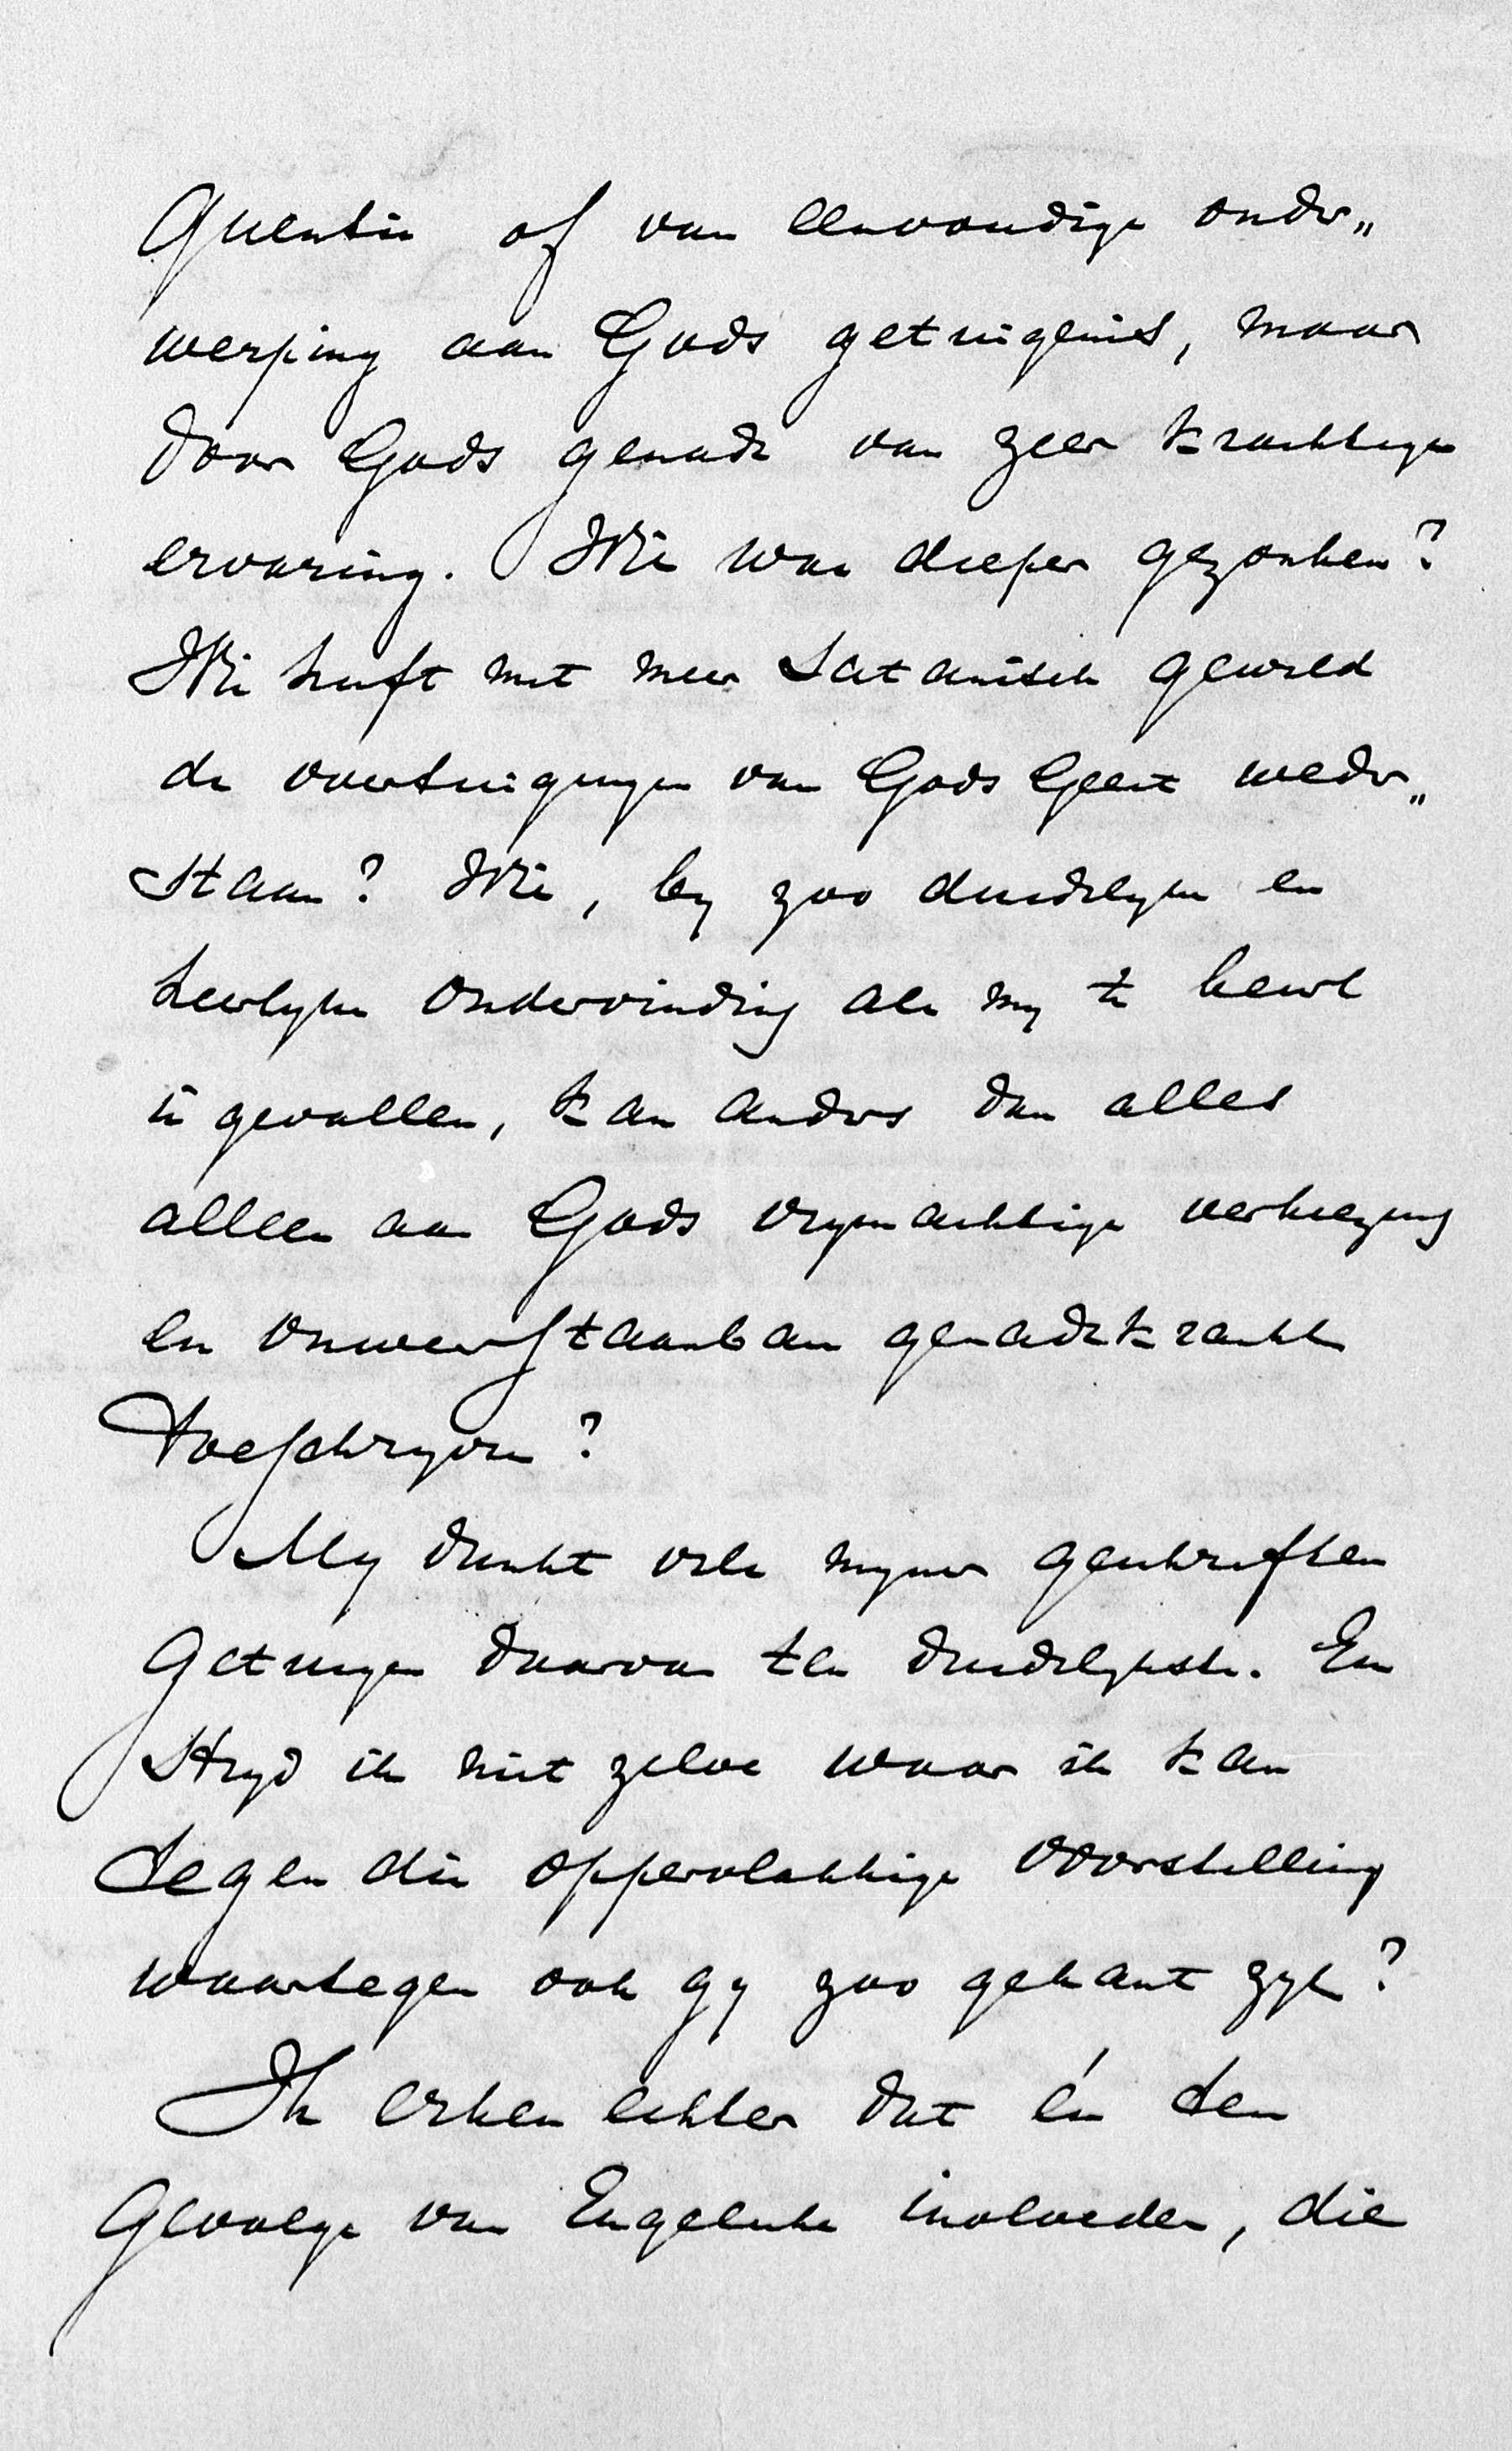 quentie of van eenvoudige onder„
werping aan Gods getuigenis, maar
door Gods genade van zeer krachtige
ervaring. Wie was dieper gezonken?
Wie heeft met meer Satanisch geweld
de overtuigingen van Gods Geest weder„
staan? Wie, by zoo duidelyke en
heerlyke ondervinding als my te beurt
is gevallen, kan anders dan alles
alleen aan Gods vrymachtige verkiezing
en onweerstaanbare genadekracht
toeschryven?
My dunkt vele myner geschriften
getuigen daarvan ten duidelykste. En
stryd ik niet zelve waar ik kan
tegen die oppervlakkige voorstelling
waartegen ook gy zoo gekant zyt?
Ik erken echter dat én ten
gevolge van Engelsche invloeden, die